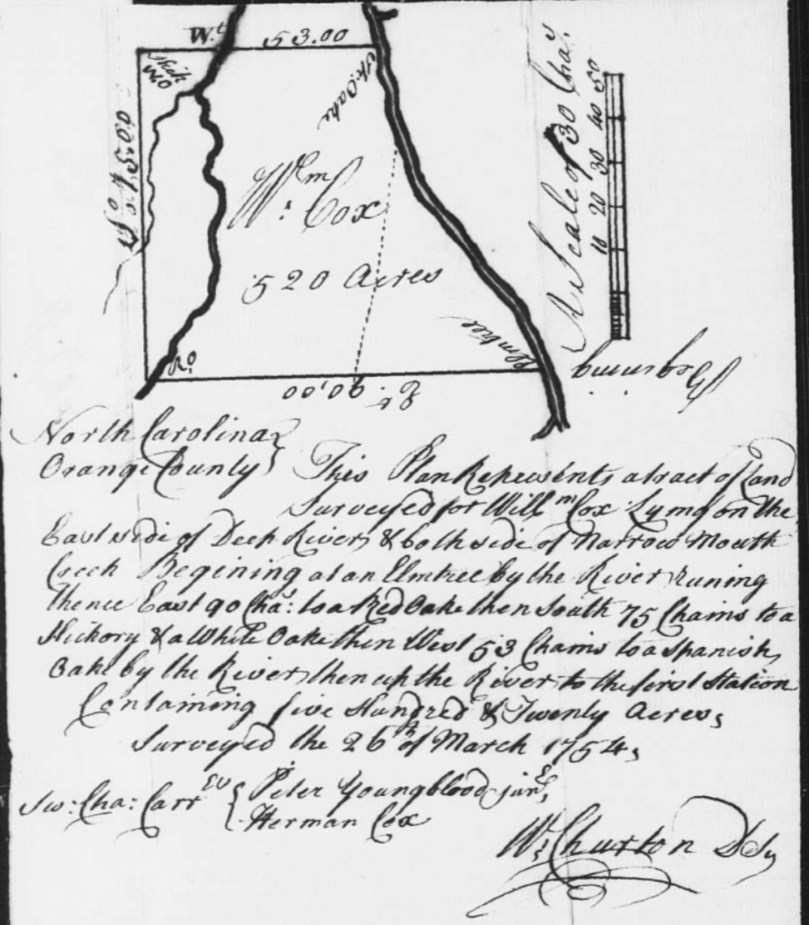 W.t 53.00
Hick
W.O
Sp.Oake
So. 75.00
Wm. Cox
520 Acres
Elmtree
R.O
Et. 90.00
A Scale of 30 Chas.
10 20 30 40 50
Begining
North Carolina
Orange County } This Plan Represents a tract of Land
Surveyed for Willm Cox Lying on the
East side of Deep River & both side of Narrow Mouth
Creek Begining at an Elmtree by the River runing
thence East 90 Cha: to a Red Oake then South 75 Chains to a
Hickory & a White Oake then West 53 Chains to a Spanish
Oake by the River then up the River to the first Station
Containing five Hundred & Twenty Acres,
Surveyed the 26th of March 1754,
Sw: Cha: Carrers { Peter Youngblood junr,
Herman Cox
W: Churton D Sr